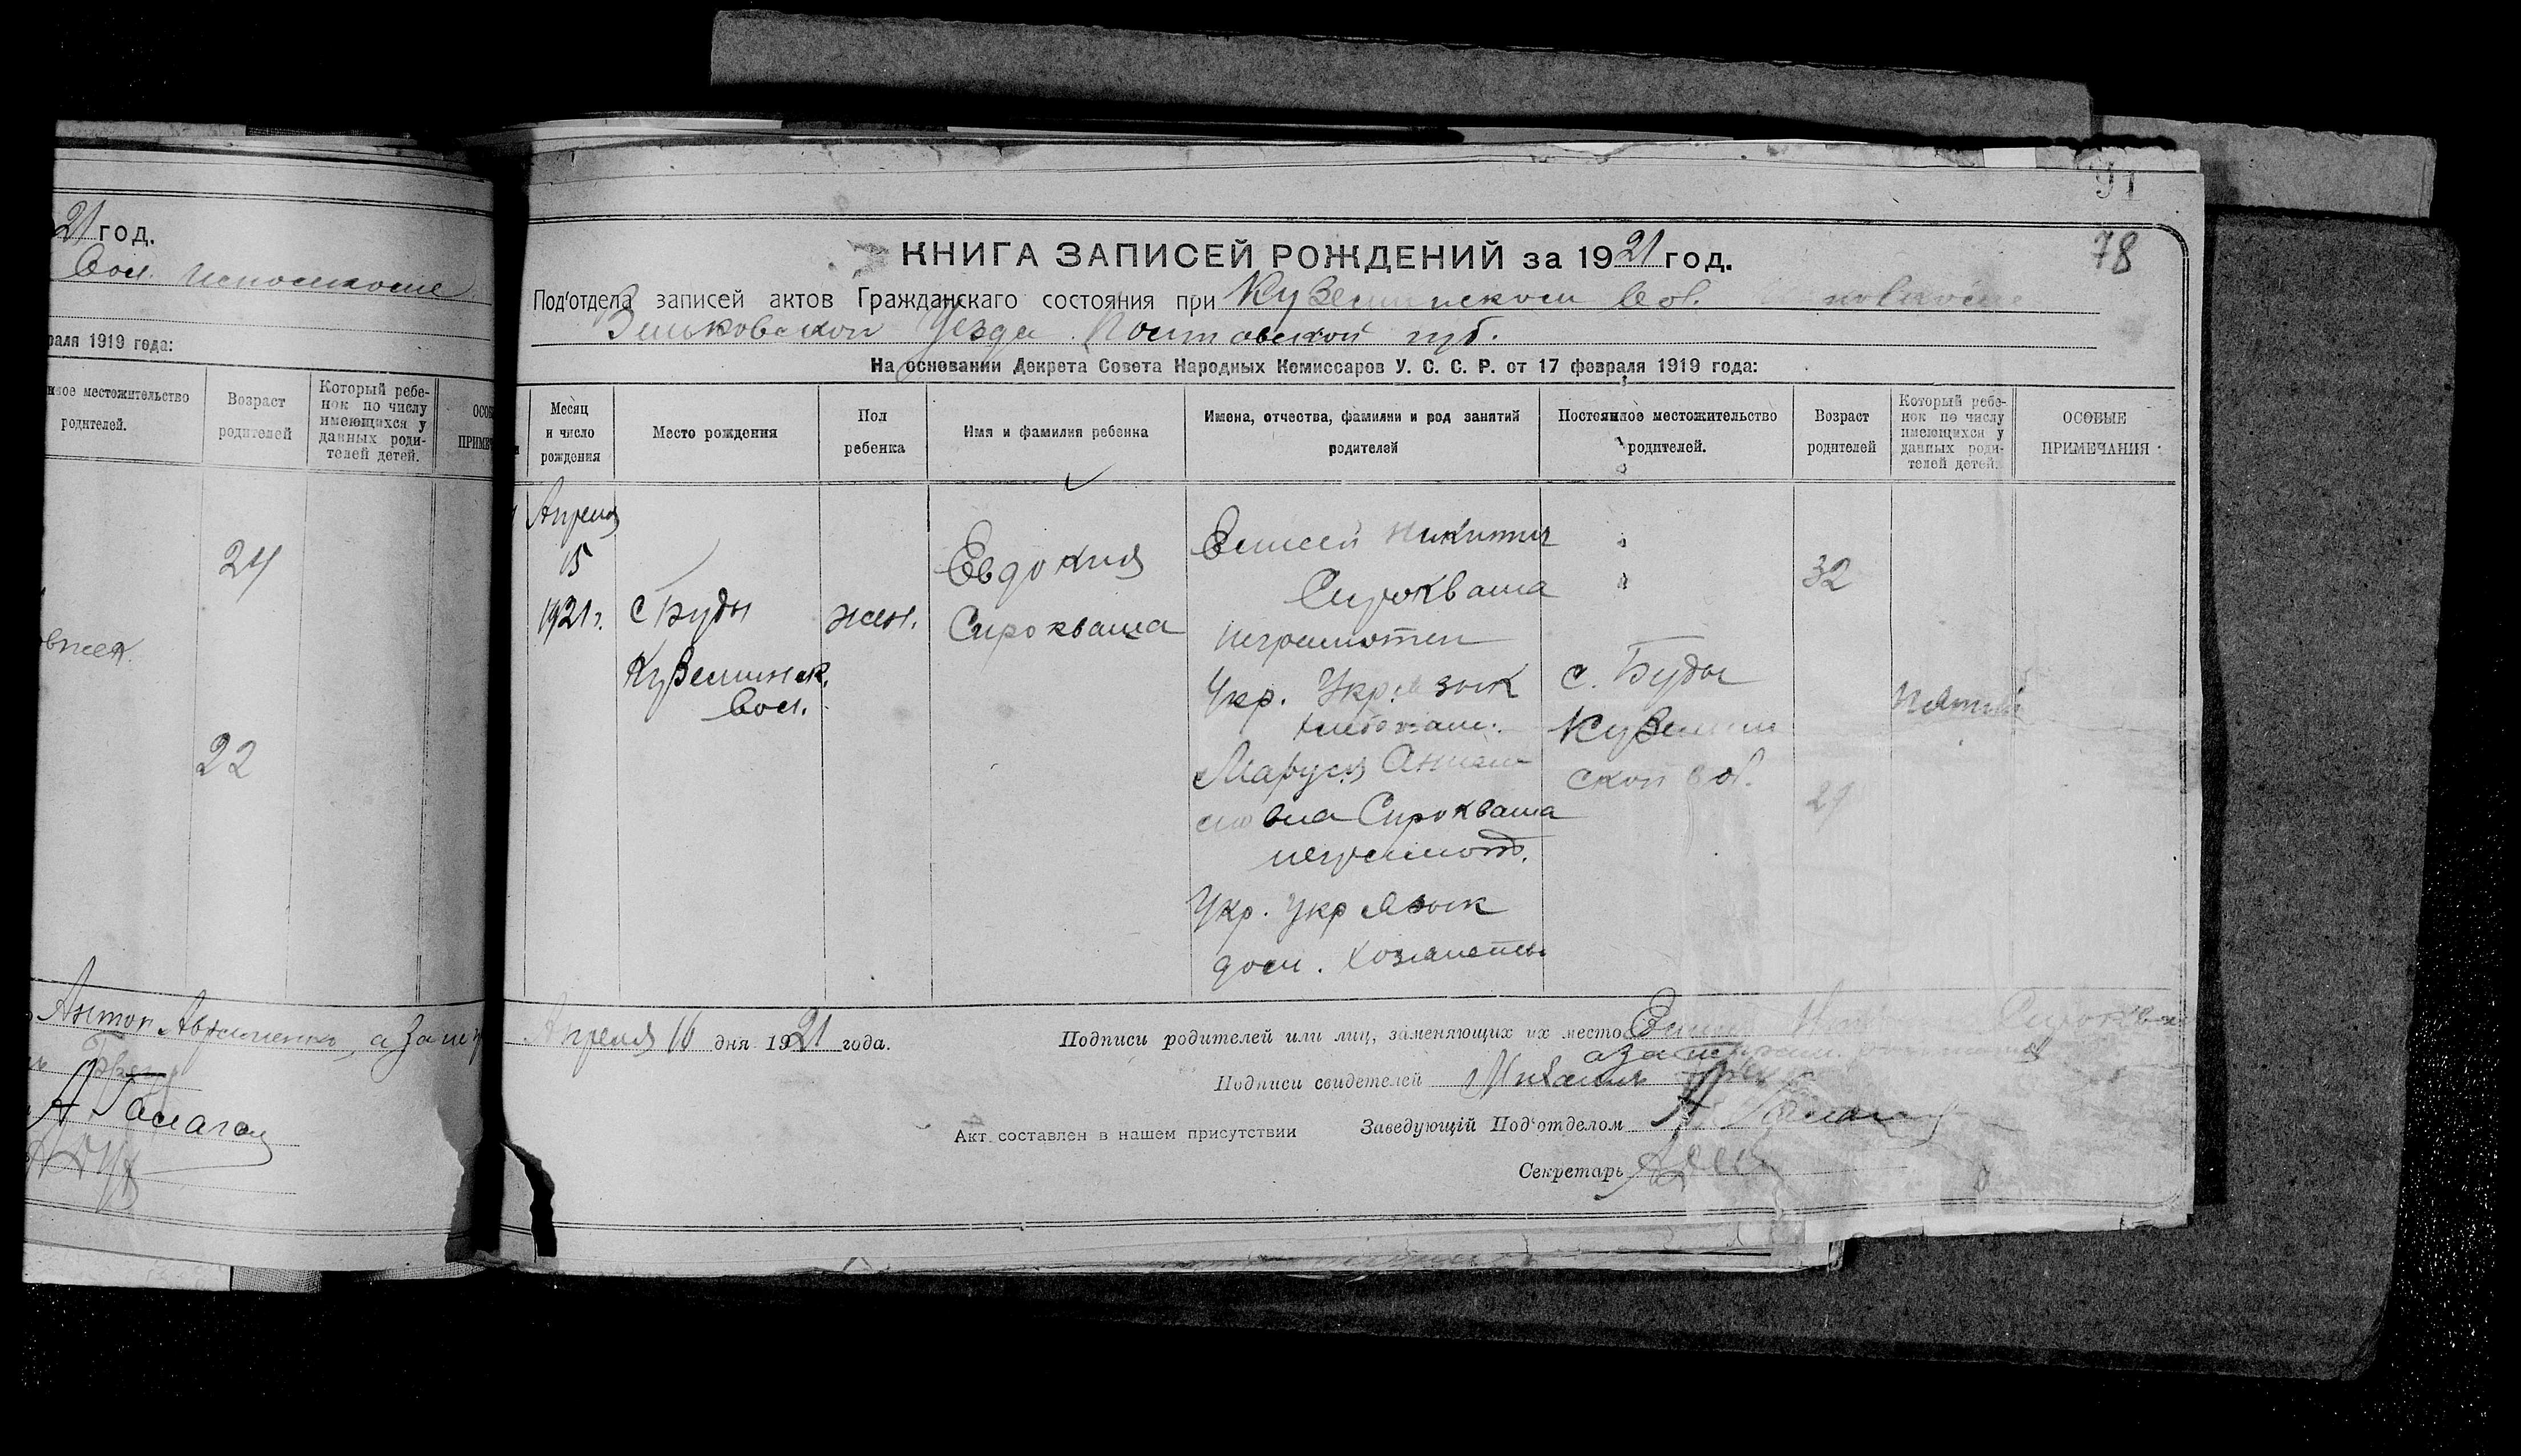 21 год.
Вол. исполкоме
раля 1919 года:
ное местожительство
родителей.
Возраст
родителей
Который ребе-
нок по числу
имеющихся у
данных роди-
телей детей.
24
22
Антон а за
А Гамага
91
78
КНИГА ЗАПИСЕЙ РОЖДЕНИЙ за 1921 год.
Под'отдела записей актов Гражданскаго состояния при Куземинском Вол.
Зиньковской Уезда Полтавской губ.
На основании Декрета Совета Народных Комиссаров У. С. С. Р. от 17 февраля 1919 года:
Месяц
и число
рождения
Место рождения
Пол
ребенка
Имя и фамилия ребенка
Имена, отчества, фамилии и род занятий
родителей
Постоянное местожительство
родителей.
Возраст
родителей
Который ребе-
нок по числу
имеющихся у
данных роди-
телей детей.
ОСОБЫЕ
ПРИМЕЧАНИЯ
Апреля
15
1921 г.
с Буды
Куземинск.
Вол.
жен.
Евдокия
Сирокваша
Елисей Никитич
Сирокваша
неграмотен
Укр. Укр. язык
хлебопаш.
Маруся
овна Сирокваша
неграмот.
Укр. Укр язык
дом. хозяйство
с. Буды
Куземин
ской вол.
32
29
пятый
Апреля 16 дня 1921 года.
Подписи родителей или лиц, заменяющих их место
а за
Подписи свидетелей Михаил
Акт составлен в нашем присутствии
Заведующій Под'отделом А Гамага
Секретарь